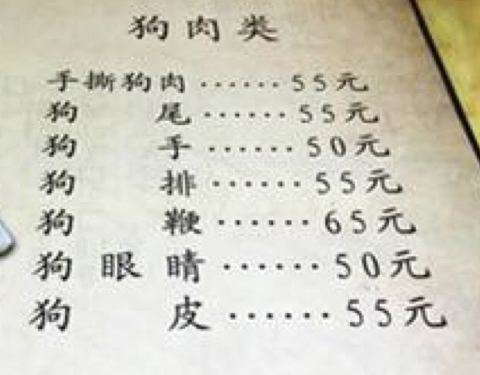 狗肉类
手撕狗肉······55元
狗尾······55元
狗手······50元
狗排······55元
狗鞭······65元
狗眼睛······50元
狗皮······55元